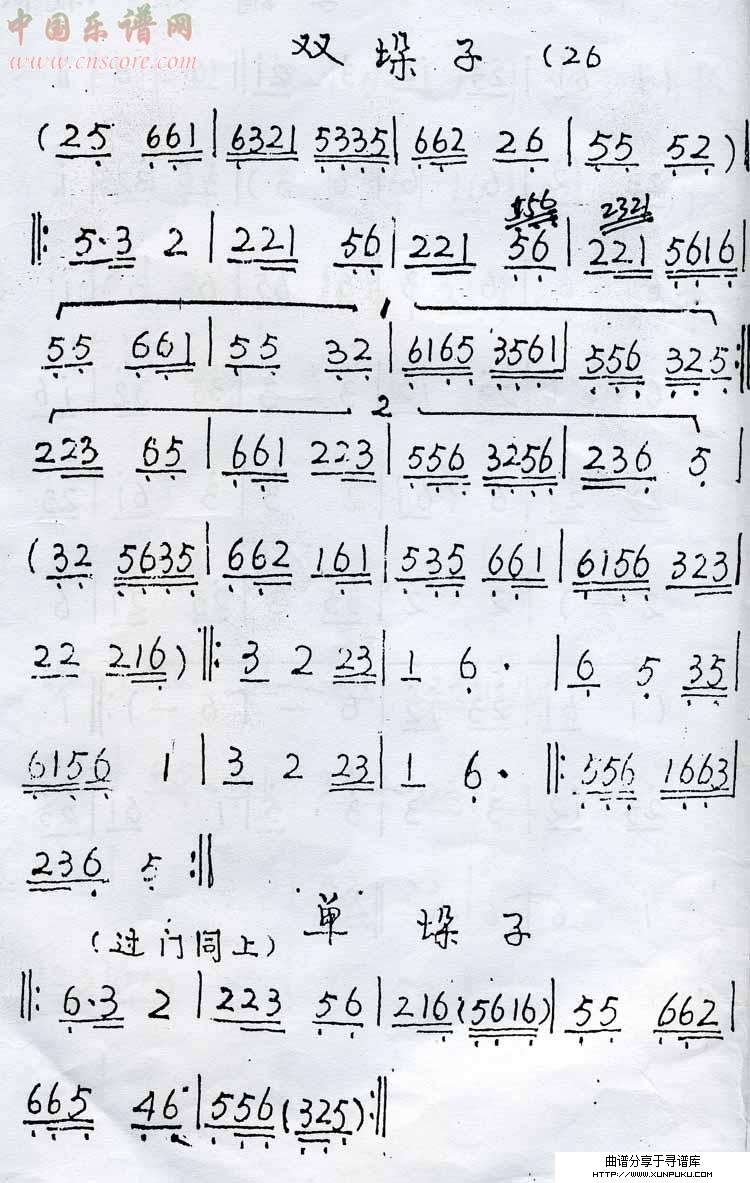 中国乐谱网
www.cnscore.com
双 垛 子 (26
(25 661|6321 5335|662 26|55 52)|
156 2321
‖:5·3 2|221 56|221 56|221 5616|
1
55 661|55 32|6165 3561|556 325:‖
2
223 65|661 223|556 3256|236 5|
(32 5635|662 161|535 661|6156 323|
22 216)‖:3 2 23|1 6·|6 5 35|
6156 1|3 2 23|1 6·‖:556 1663|
236 5:‖
(过门同上) 单 垛 子
‖:6·3 2|223 56|216(5616)|55 662|
665 46|556(325):‖
曲谱分享于寻谱库
HTTP://WWW.XUNPUKU.COM